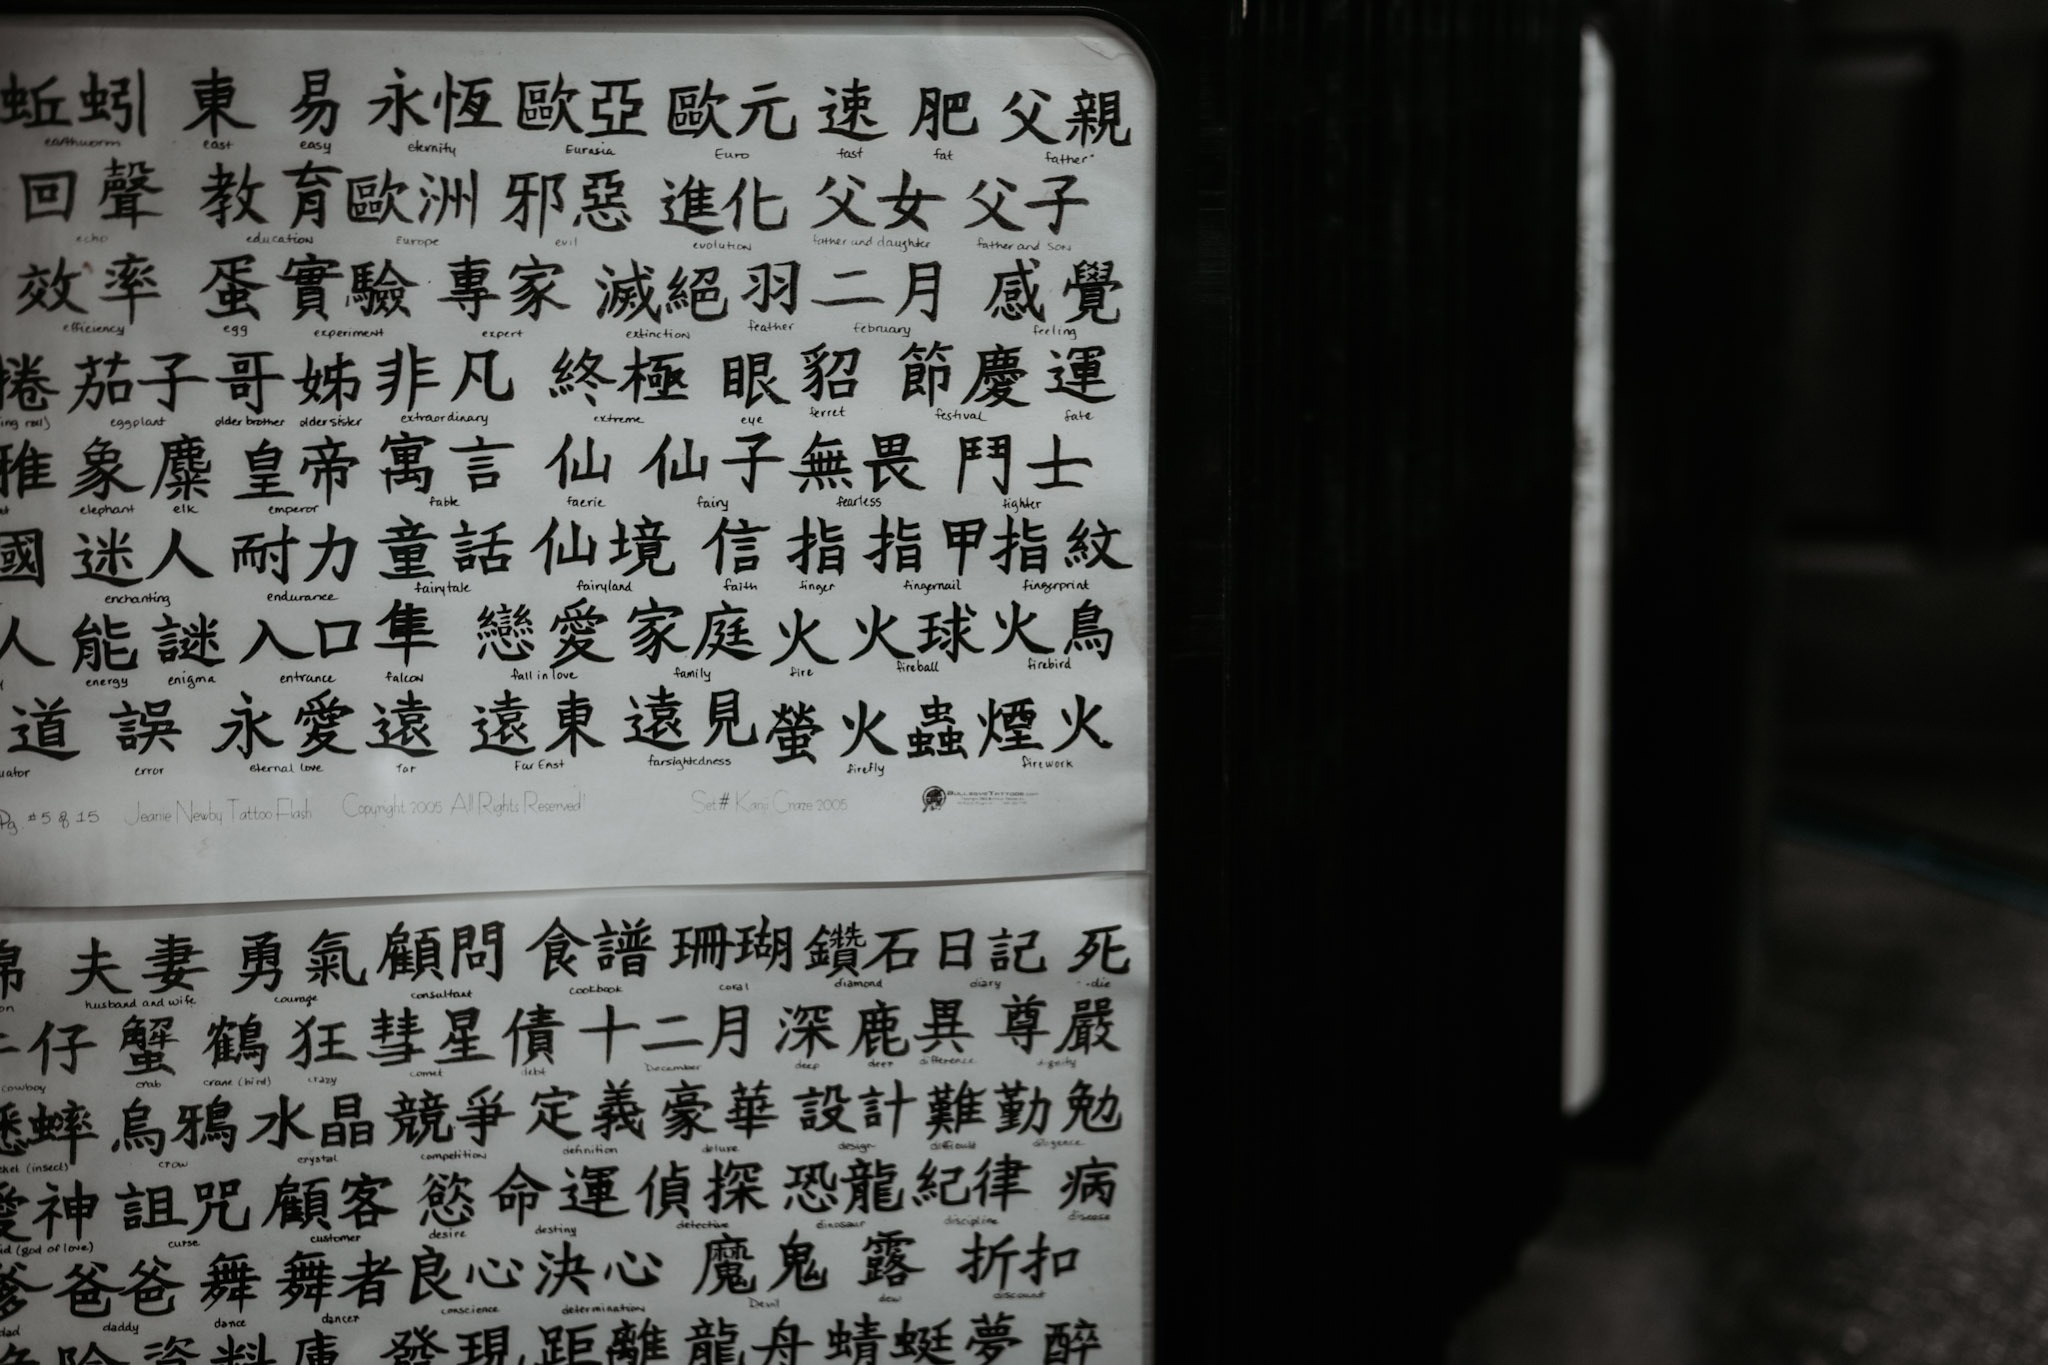 蚯蚓 東 易 永恆 歐亞 歐元 速 肥 父親
earthworm east easy eternity Eurasia Euro fast fat father
回聲 教育 歐洲 邪惡 進化 父女 父子
echo education Europe evil evolution father and daughter father and son
效率 蛋 實驗 專家 滅絕 羽 二月 感覺
efficiency egg experiment expert extinction feather February feeling
捲 茄子 哥 姊 非凡 終極 眼 貂 節慶 運
ing roll) eggplant older brother older sister extraordinary extreme eye ferret festival fate
雅 象 麋 皇帝 寓言 仙 仙子 無畏 鬥士
elephant elk emperor fable faerie fairy fearless fighter
國 迷人 耐力 童話 仙境 信 指 指甲 指紋
enchanting endurance fairytale fairyland faith finger fingernail fingerprint
人 能 謎 入口 隼 戀愛 家庭 火 火球 火鳥
energy enigma entrance falcon fall in love family fire fireball firebird
道 誤 永愛 遠 遠東 遠見 螢火蟲 煙火
uator error eternal love far Far East farsightedness firefly firework
Pg. #5 of 15 Jeanie Newby Tattoo Flash Copyright 2005 All Rights Reserved! Set# Kanji Craze 2005 BullseyeTattoos.com
棉 夫妻 勇氣 顧問 食譜 珊瑚 鑽石 日記 死
on husband and wife courage consultant cookbook coral diamond diary die
仔 蟹 鶴 狂 彗星 債 十二月 深 鹿 異 尊嚴
cowboy crab crane (bird) crazy comet debt December deep deer difference dignity
蟋蟀 烏鴉 水晶 競爭 定義 豪華 設計 難 勤勉
ket (insect) crow crystal competition definition deluxe design difficult diligence
愛神 詛咒 顧客 慾 命運 偵探 恐龍 紀律 病
id (god of love) curse customer desire destiny detective dinosaur discipline disease
爹 爸爸 舞 舞者 良心 決心 魔鬼 露 折扣
dad daddy dance dancer conscience determination Devil dew discount
危險 資料庫 發現 距離 龍舟 蜻蜓 夢 醉